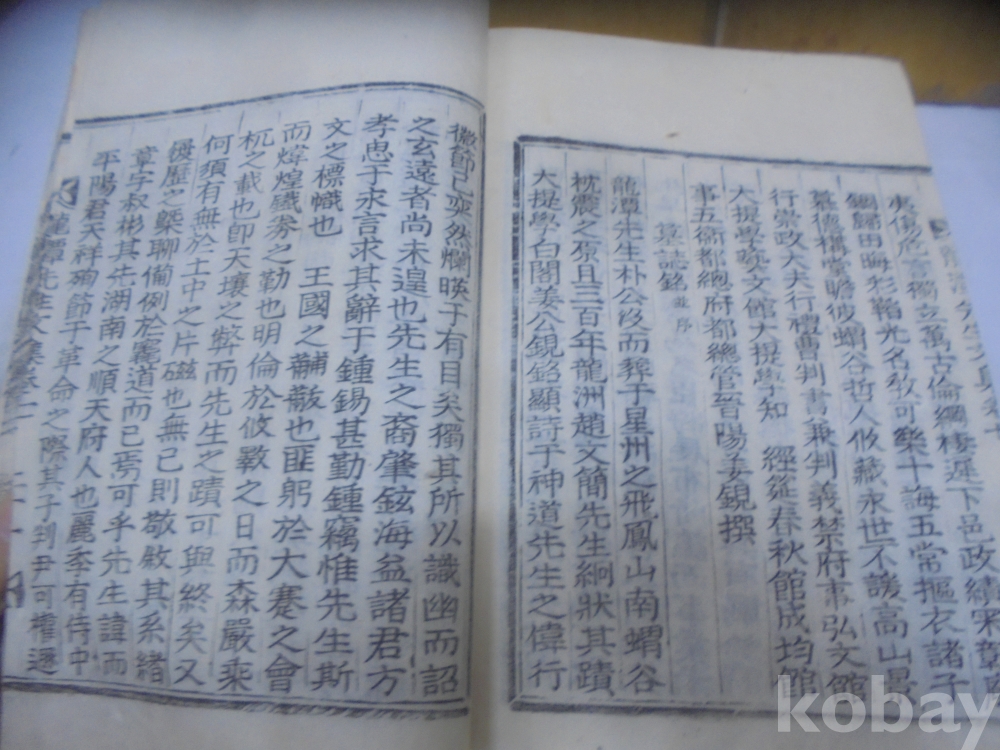 夷傷危言獨立萬古倫綱棲遲下邑政績
錮歸田晦彩鞱光名敎可樂十誨五常摳衣諸子
慕德構堂瞻彼蝟谷哲人攸藏永世不諼高山景
行崇政大夫行禮曹判書兼判義禁府事弘文館
大提學藝文館大提學知 經筵春秋館成均館
事五衞都總府都總管晉陽姜鋧撰
墓誌銘 並序
龍潭先生朴公歿而葬于星州之飛鳳山南蝟谷
枕震之原且三百年龍洲趙文簡先生絅狀其蹟
大提學白閣姜公鋧銘顯詩于神道先生之偉行
徽節已奕然爛暎于有目矣獨其所以識幽而詔
之玄遠者尚未遑也先生之裔肇鉉海益諸君方
孝思于永言求其辭于鍾錫甚勤鍾竊惟先生斯
文之標幟也 王國之黼黻也匪躬於大蹇之會
而煒煌鐵券之勒也明倫於攸斁之日而森嚴乘
杌之載也卽天壤之弊而先生之蹟可與終矣又
何須有無於土中之片磁也無已則敬敘其系緖
優歷之槩聊備例於麗道而已焉可乎先生諱而
章字叔彬其先湖南之順天府人也麗季有侍中
平陽君天祥殉節于革命之際其子刊尹可權遯
龍潭先生文集卷之二